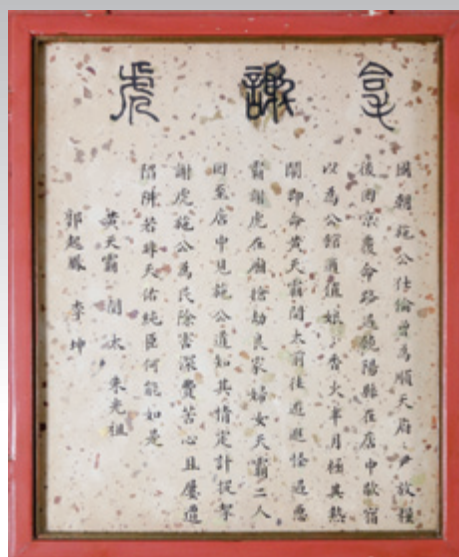 拿謝虎
國朝施公仕倫曾為順天府尹放糧
後回京覆命路過饒陽縣在店中歇宿
以為公館適值娘々香火半月極其熱
鬧即命黃天霸關太前往遊逛恰遇惡
霸謝虎在廟搶劫良家婦女天霸二人
回至店中見施公道知其情定計捉拏
謝虎施公為民除害深費苦心且屢遭
陷阱若非天佑純臣何能如是
黃天霸 關太 朱光祖
郭起鳳 李坤